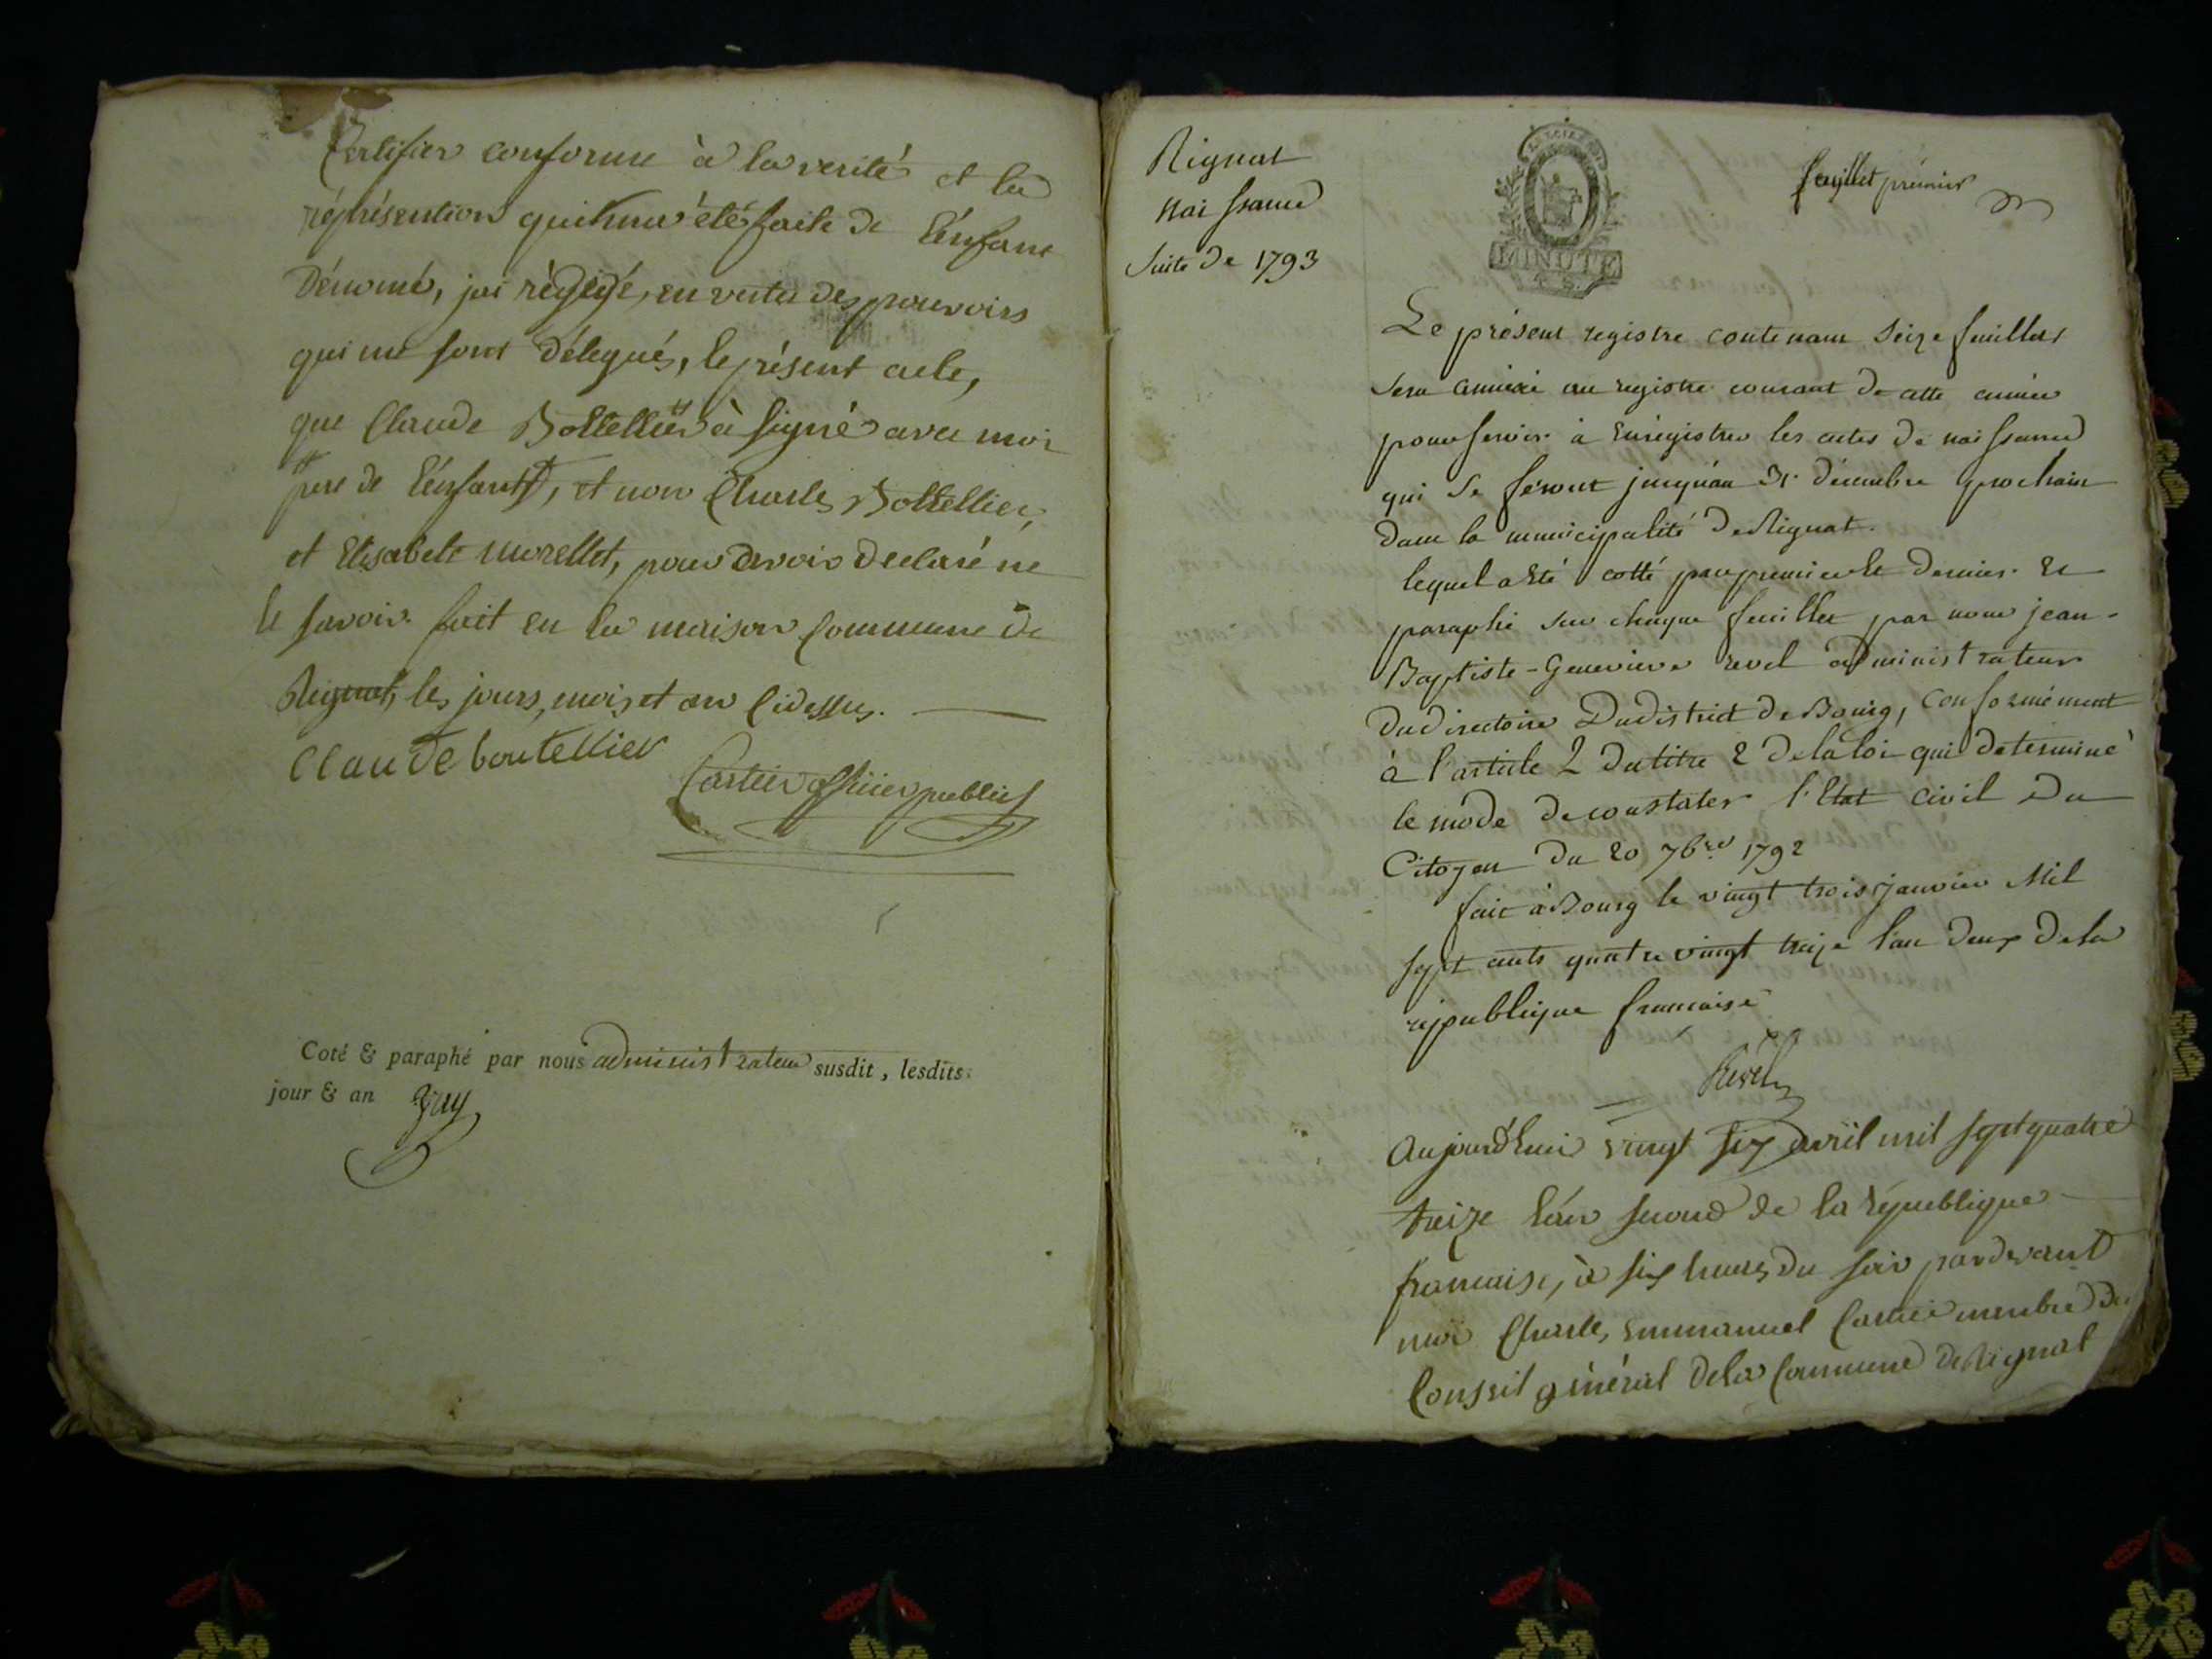 Certifier conforme à la verité et la
réprésention quil ma été faite de l'énfant
Dénomé, jai règigé, en vertu des pouvoirs
qui me sont délegués, le présent acte,
que Claude Bottellier # à signé avec moi
# pere de l'énfant, et non Charles Bottellier,
et Elisabete morellet, pour avoir declaré ne
le savoir. fait en la maison Commune de
Rignat, les jours, mois et an cidessus.
Claude boutellier
Cartier officier publics
Coté & paraphé par nous administrateur susdit, lesdits
jour & an
Rignat
naissance
Suite de 1793
feuillet prémier
MINUTE
4 S.
Le présent registre contenant Seize feuillets
sera annéxé au registre courant de cette année
pour servir à Enregistrer les actes de naissance
qui Se feront jusqu'au 31 décembre prochain
dans la municipalité de Rignat.
lequel a Eté cotté par premier et dernier Et
paraphé sur chaque feuillet par nous jean-
Baptiste-Genevieve revel administrateur
du directoire Du district de Bourg, conformément
à l'article 2 du titre 2 de la loi qui determine
le mode de constater l'Etat civil du
Citoyen du 20 7bre 1792
fait à Bourg le vingt trois janvier Mil
sept cents quatre vingt treize l'an deux de la
republique francaise
Revel
Aujourd'hui vingt six avril mil sept quatre
treize l'án second de la république
francaise, à six heures du soir pardevant
moi Charle, Emmanuel Cartier membre du
Conseil général de la Commune de Rignat